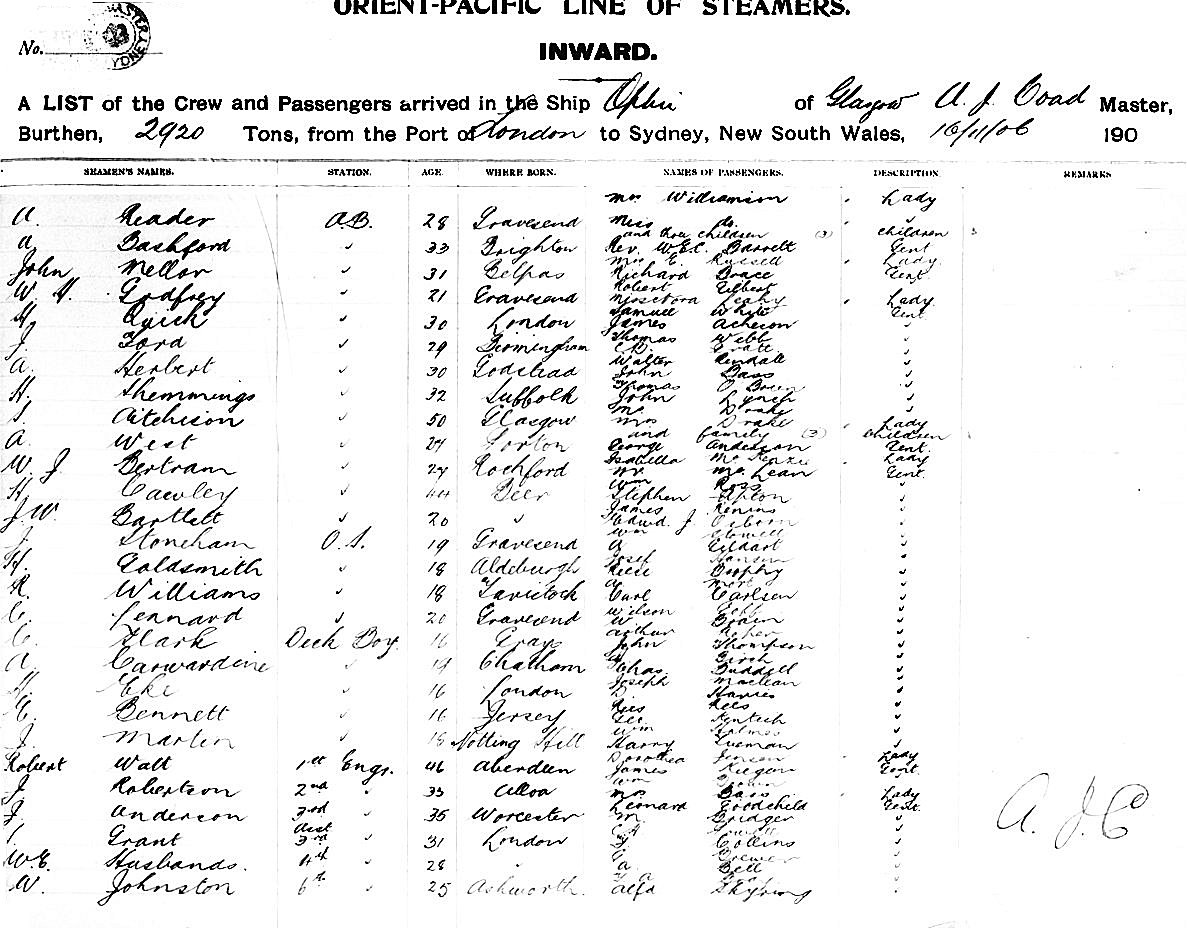 ORIENT-PACIFIC LINE OF STEAMERS.
No.
INWARD.
A LIST of the Crew and Passengers arrived in the Ship Ophir of Glasgow A. J. Coad Master,
Burthen, 2920 Tons, from the Port of London to Sydney, New South Wales, 16/11/06 190
SEAMEN'S NAMES. STATION. AGE. WHERE BORN. NAMES OF PASSENGERS. DESCRIPTION REMARKS
Mrs Williamson Lady
A. Reader A.B. 28 Gravesend Miss do
and three children (3) children 3
A. Bashford " 33 Brighton Rev. W.E.C. Barrett Gent
Mrs E. Russell Lady
John Mellor " 31 Belpas Richard Brace Gent
Robert Gilbert
W. H. Godfrey " 21 Gravesend Leahy Lady
Samuel White Gent
H. Quick " 30 London James Acheson "
J. Ford " 29 Birmingham Thomas Webb "
Pratt "
A. Herbert " 30 Godstead Walter Rendall "
John Bass "
H. Shemmings " 32 Suffolk Thomas O'Brien "
John Lynch "
S. Aitchison " 50 Glasgow Mr Drake "
Mrs Drake Lady
A. West " 24 and family (3) children
George Anderson Gent
W. J. Bertram " 27 Rochford Isabella McKenzie Lady
Mr McLean Gent
H. Cawley " 44 Beer Wm Ross "
Stephen Upton "
J.W. Bartlett " 20 " James "
Edwd. J. Osborn "
J. Stoneham O.S. 19 Gravesend Wm "
G. Goldsmith " 18 Aldeburgh Josef Hansen "
Reese Brophy "
R. Williams " 18 Tavistock Carl Carlsen "
C. Lennard " 20 Gravesend Wilson "
W. Brain "
C. Clark Deck Boy 16 Grays Arthur "
John Thompson "
A. Carwardine " 19 Chatham Birch "
Chas Buddell "
H. Eke " 16 London Joseph Maclean "
D. Harries "
C. Bennett " 16 Jersey Rees Rees "
Geo. "
J. Martin " 18 Notting Hill Wm Holmes "
Harry "
Robert Watt 1st Engr. 46 Aberdeen Dorothea Jensen Lady
James Keegan Gent
J. Robertson 2nd " 33 Alloa Wm Brown
Mrs Bass Lady
J. Anderson 3rd " 35 Worcester Leonard Goodchild Gent
M. Bridger "
Grant Asst 3rd " 31 London
Collins "
W.E. Husbands. 4th " 28 " Brewer "
A. Bell "
W. Johnston 6th " 25 Ashworth. Alfd Skyring "
A. J. C